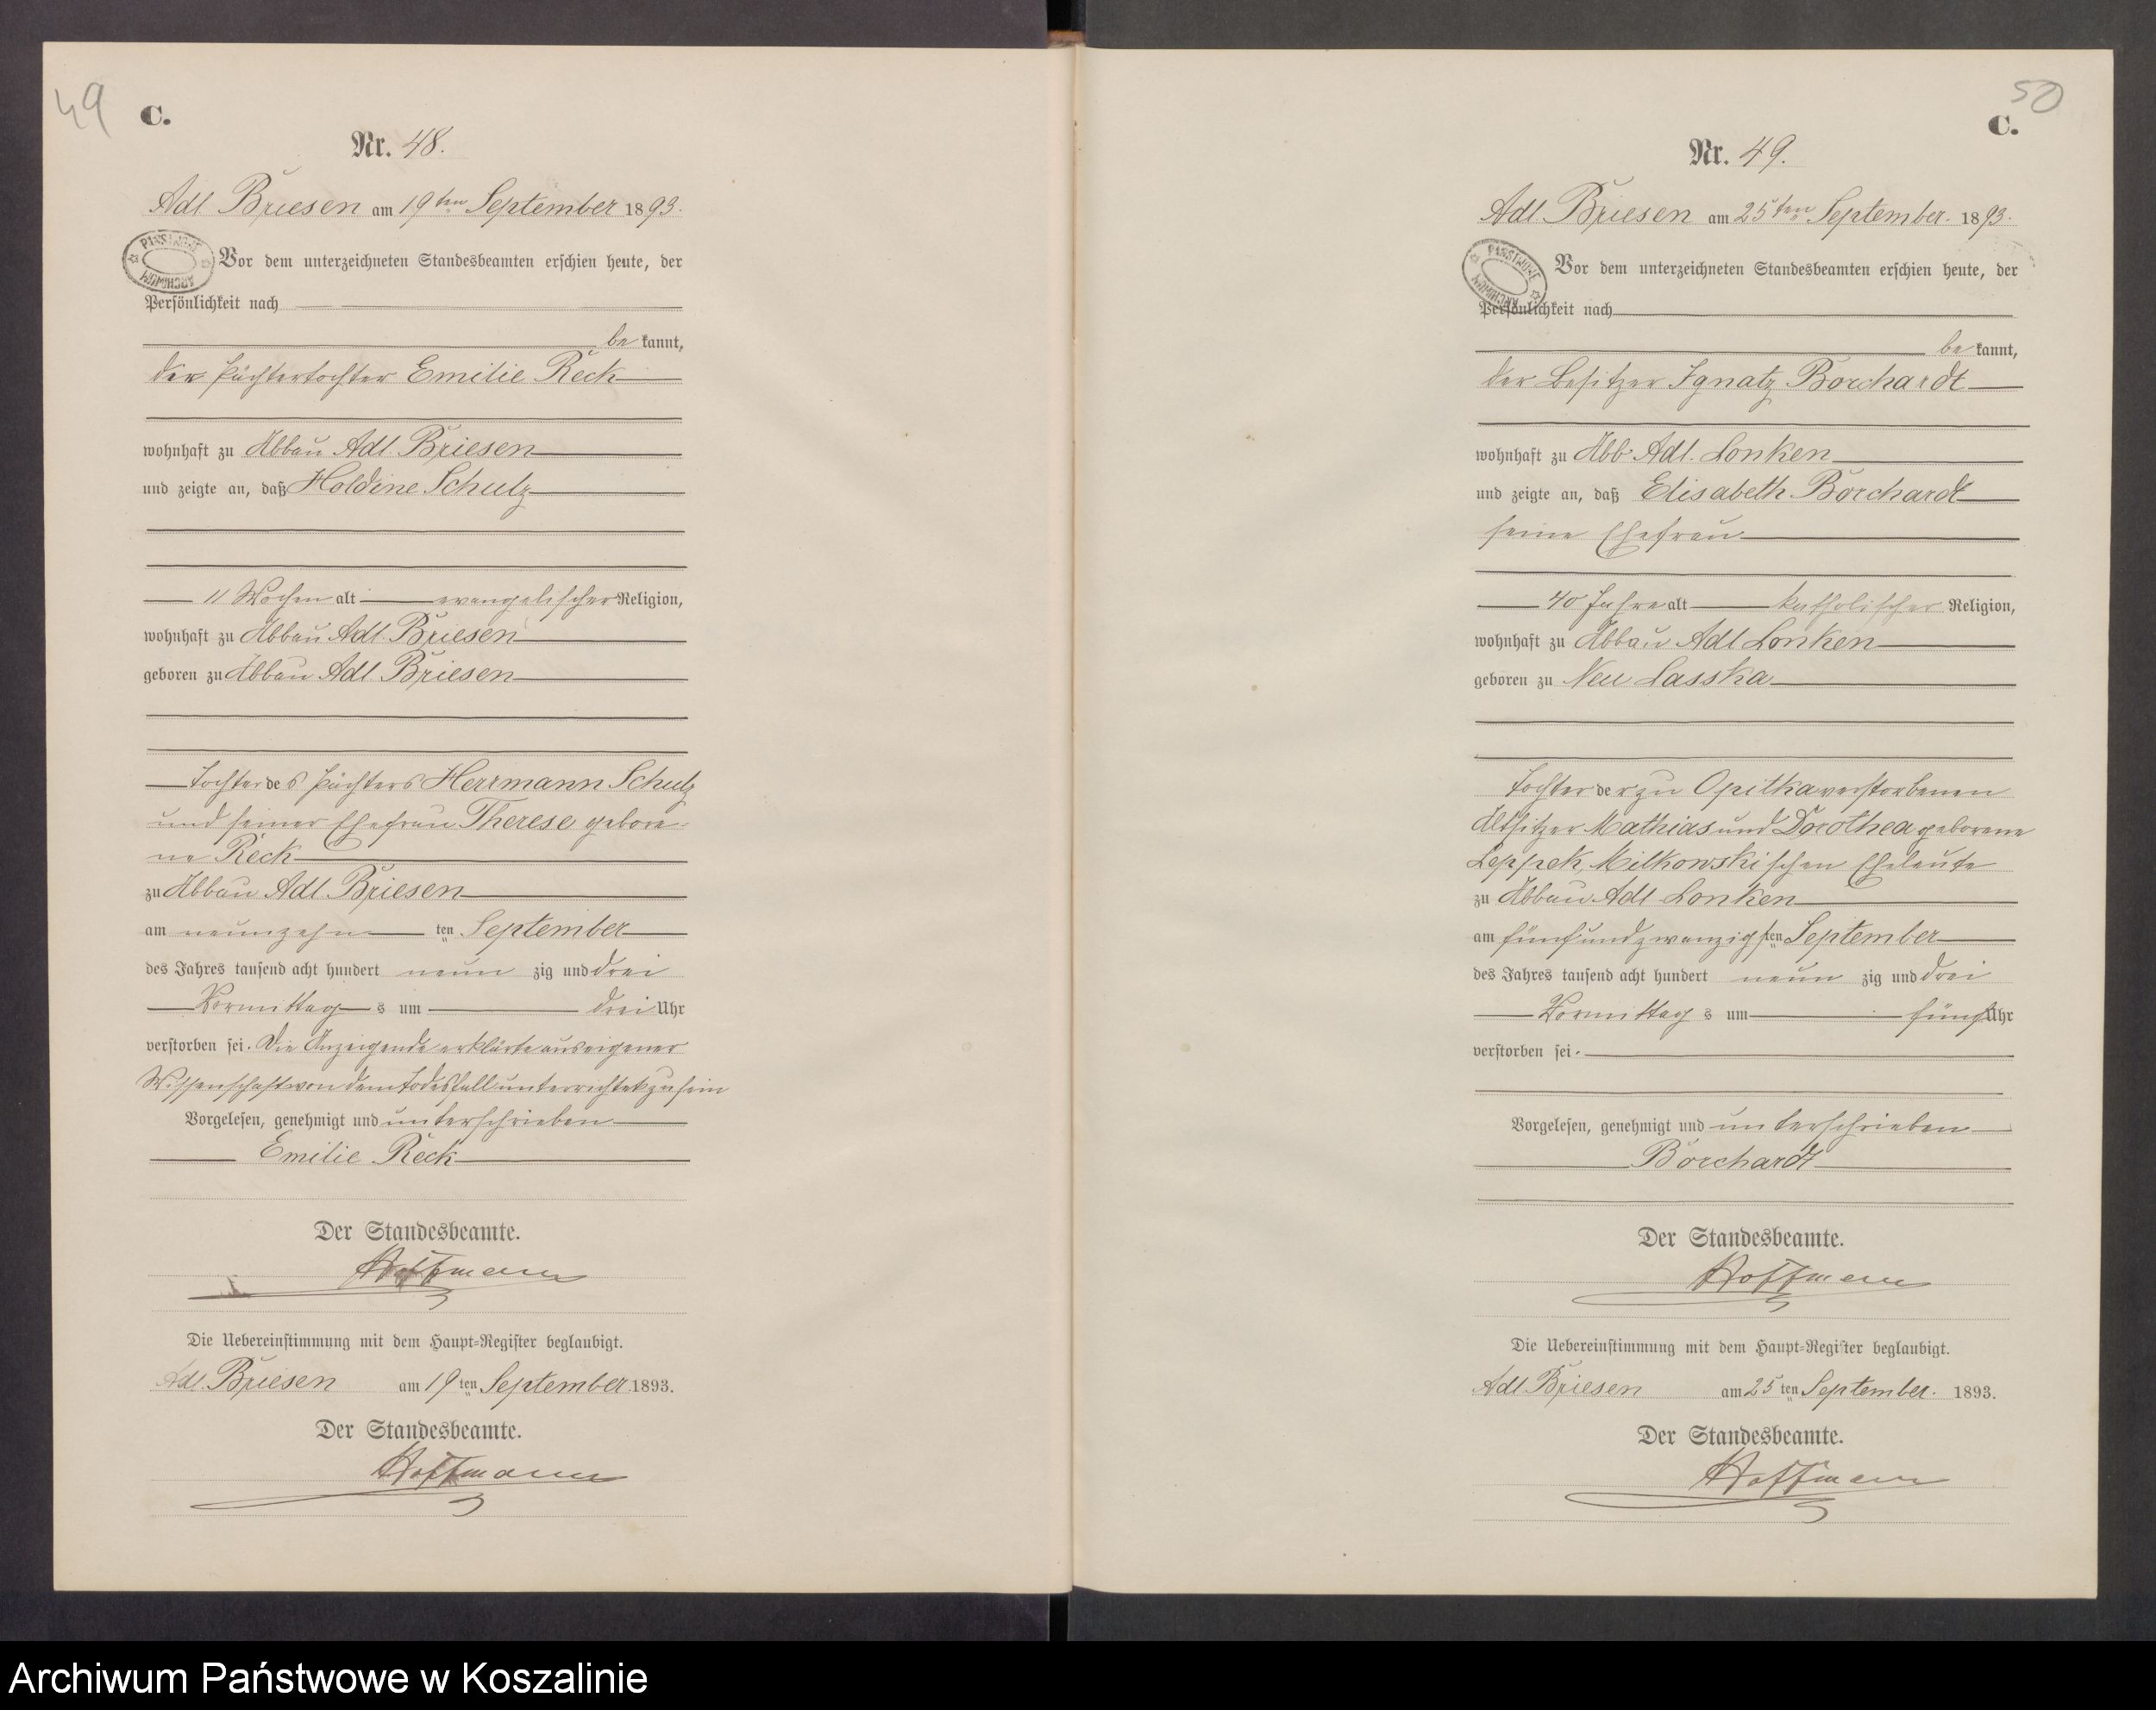 49
C.
Nr. 48.
Adl. Briesen am 19ten September 1893.
PAŃSTWOWE ARCHIWUM
Vor dem unterzeichneten Standesbeamten erschien heute, der
Persönlichkeit nach
be kannt,
der Pächtertochter Emilie Reck
wohnhaft zu Abbau Adl. Briesen
und zeigte an, daß Holdine Schulz
11 Wochen alt evangelischer Religion,
wohnhaft zu Abbau Adl. Briesen
geboren zu Abbau Adl. Briesen
Tochter des Pächters Herrmann Schulz
und seiner Ehefrau Therese gebore-
ne Reck
zu Abbau Adl. Briesen
am neunzehn ten September
des Jahres tausend acht hundert neun zig und drei
Vormittag s um drei Uhr
verstorben sei. Die Anzeigende erklärte aus eigener
Wissenschaft von dem Todesfall unterrichtet zu sein
Vorgelesen, genehmigt und unterschrieben
Emilie Reck
Der Standesbeamte.
Hoffmann
Die Uebereinstimmung mit dem Haupt-Register beglaubigt.
Adl. Briesen am 19 ten September 1893.
Der Standesbeamte.
Hoffmann
50
C.
Nr. 49.
Adl. Briesen am 25ten September. 1893.
PAŃSTWOWE ARCHIWUM
Vor dem unterzeichneten Standesbeamten erschien heute, der
Persönlichkeit nach
be kannt,
der Besitzer Ignatz Borchardt
wohnhaft zu Abb Adl. Lonken
und zeigte an, daß Elisabeth Borchardt
seine Ehefrau
40 Jahre alt katholischer Religion,
wohnhaft zu Abbau Adl Lonken
geboren zu Neu Lasska
Tochter der zu Opitka verstorbenen
Altsitzer Mathias und Dorothea geborene
Leppek, Milkowskischen Eheleute
zu Abbau Adl Lonken
am fünfundzwanzigsten September
des Jahres tausend acht hundert neun zig und drei
Vormittag s um fünf Uhr
verstorben sei.
Vorgelesen, genehmigt und unterschrieben
Borchardt
Der Standesbeamte.
Hoffmann
Die Uebereinstimmung mit dem Haupt-Register beglaubigt.
Adl Briesen am 25 ten September. 1893.
Der Standesbeamte.
Hoffmann
Archiwum Państwowe w Koszalinie